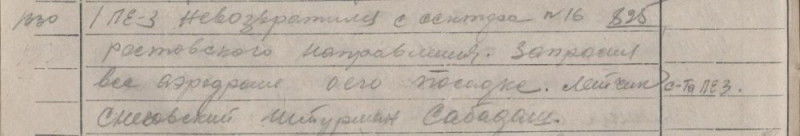 1330 1 ПЕ-3 Невозвратился с сектора №16 825
ростовского направления. Запросил
все аэродромы оего посадке. Летчик с-та ПЕ3.
Снеговский штурман Сабадаш.